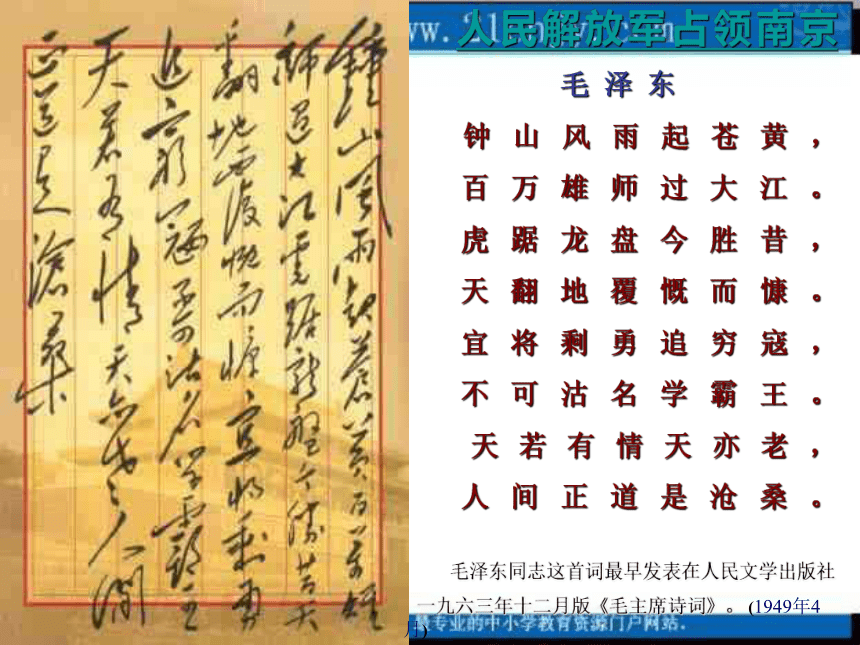 鍾山風雨起蒼黃百萬雄
師過大江虎踞龍盤今勝昔天
翻地覆慨而慷宜將剩勇
追窮寇不可沽名學霸王
天若有情天亦老人間
正道是滄桑
人民解放军占领南京
毛泽东
钟山风雨起苍黄，
百万雄师过大江。
虎踞龙盘今胜昔，
天翻地覆慨而慷。
宜将剩勇追穷寇，
不可沽名学霸王。
天若有情天亦老，
人间正道是沧桑。
毛泽东同志这首词最早发表在人民文学出版社
一九六三年十二月版《毛主席诗词》。 (1949年4
月)
最专业的中小学教育资源门户网站.